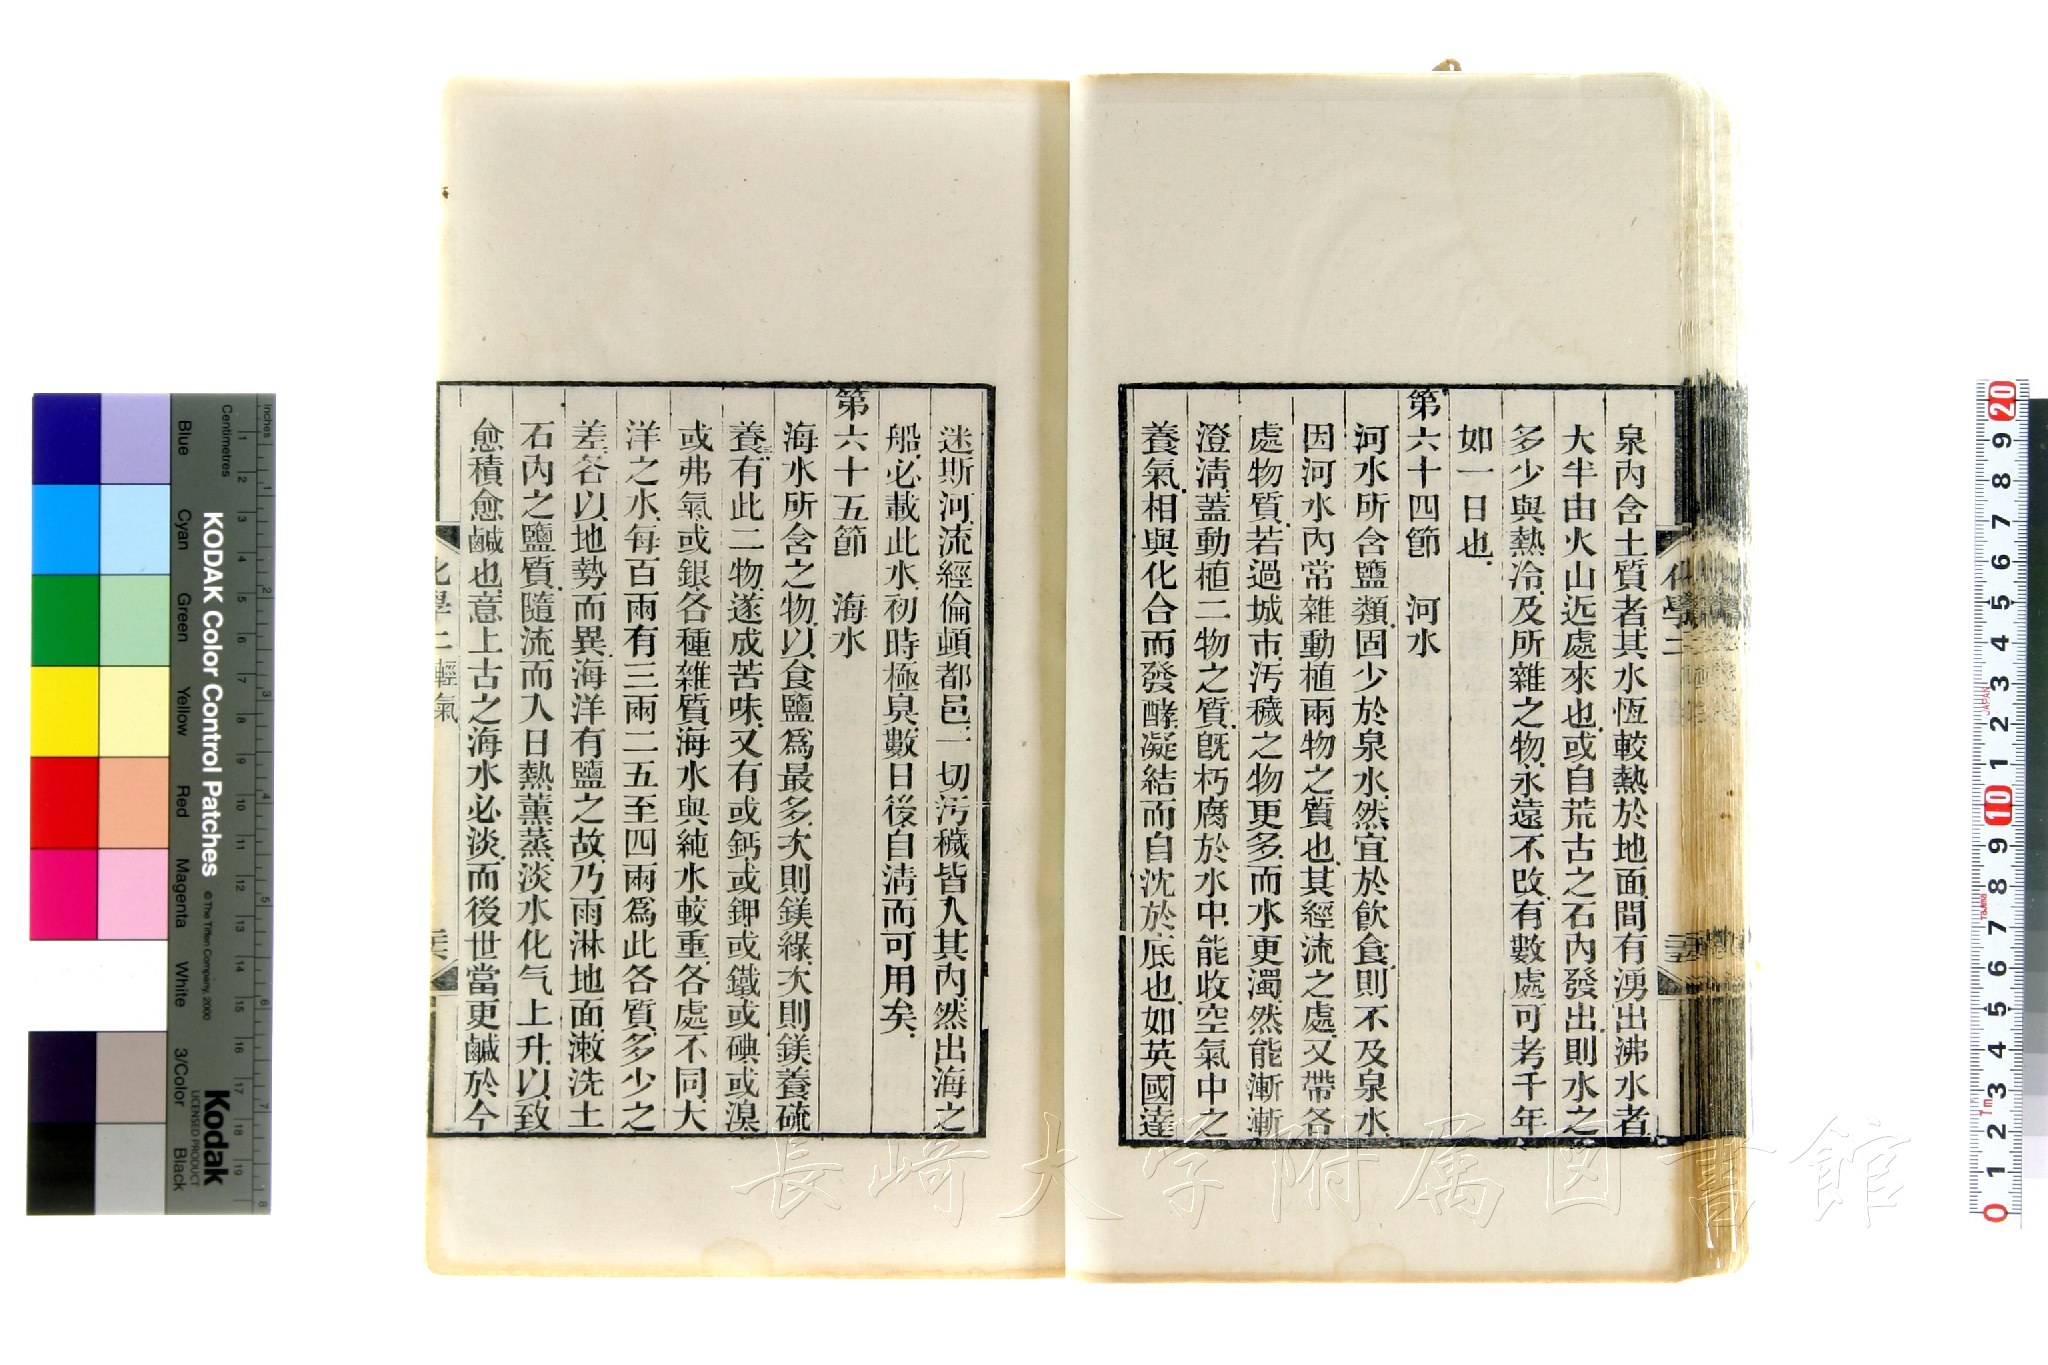 泉內含土質者其水恆較熱於地面間有湧出沸水者
大半由火山近處來也或自荒古之石內發出則水之
多少與熱冷及所雜之物永遠不改有數處可考千年
如一日也
第六十四節　河水
河水所含鹽類固少於泉水然宜於飲食則不及泉水
因河水內常雜動植兩物之質也其經流之處又帶各
處物質若過城市汚穢之物更多而水更濁然能漸漸
澄淸蓋動植二物之質旣朽腐於水中能收空氣中之
養氣相與化合而發酵凝結而自沈於底也如英國達
迷斯河流經倫頓都邑一切汚穢皆入其內然出海之
船必載此水初時極臭數日後自淸而可用矣
第六十五節　海水
海水所含之物以食鹽爲最多次則鎂綠次則鎂養硫
養有此二物遂成苦味又有或鈣或鉀或鐵或碘或溴
或弗氣或銀各種雜質海水與純水較重各處不同大
洋之水每百兩有三兩二五至四兩爲此各質多少之
差各以地勢而異海洋有鹽之故乃雨淋地面漱洗土
石內之鹽質隨流而入日熱薰蒸淡水化气上升以致
愈積愈鹹也意上古之海水必淡而後世當更鹹於今
化學二
化學二輕氣
長崎大学附属図書館
KODAK Color Control Patches
© The Tiffen Company, 2000
Kodak
LICENSED PRODUCT
Inches
Centimetres
Blue
Cyan
Green
Yellow
Red
Magenta
White
3/Color
Black